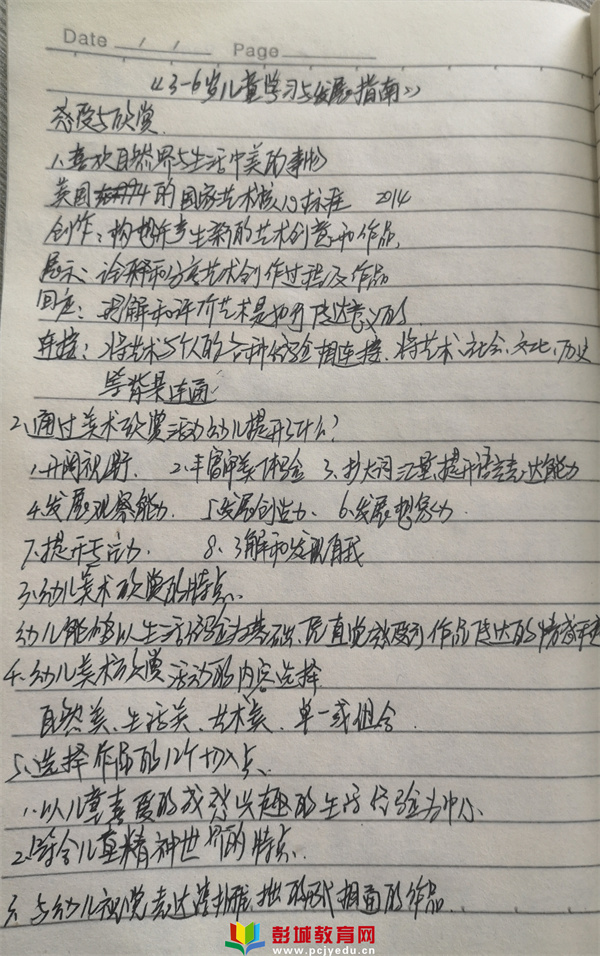 Date / / Page
《3-6岁儿童学习与发展指南》
感受与欣赏
1、喜欢自然界与生活中美的事物
美国的国家艺术核心标准 2014
创作：构想并产生新的艺术创意和作品
展示：诠释和分享艺术创作过程及作品
回应：理解和评价艺术是如何传达意义的
连接：将艺术与个人的各种经验相连接、将艺术、社会、文化、历史
等背景连通
2、通过美术欣赏活动幼儿提升了什么？
1、开阔视野、 2、丰富审美体验 3、扩大词汇量、提升语言表达能力
4、发展观察能力、 5、发展创造力、 6、发展想象力
7、提升专注力、 8、了解和发现自我
3、幼儿美术欣赏的特点、
幼儿能够以生活经验为基础、凭直觉感受到作品传达的情
4、幼儿美术欣赏活动的内容选择
自然类、生活类、艺术类、单一或组合
5、选择作品的12个切入点、
1、以儿童喜爱的或感兴趣的生活经验为中心、
2、符合儿童精神世界的特点、
3、与幼儿视觉表达相通的作品、
彭城教育网
www.pcjyedu.cn